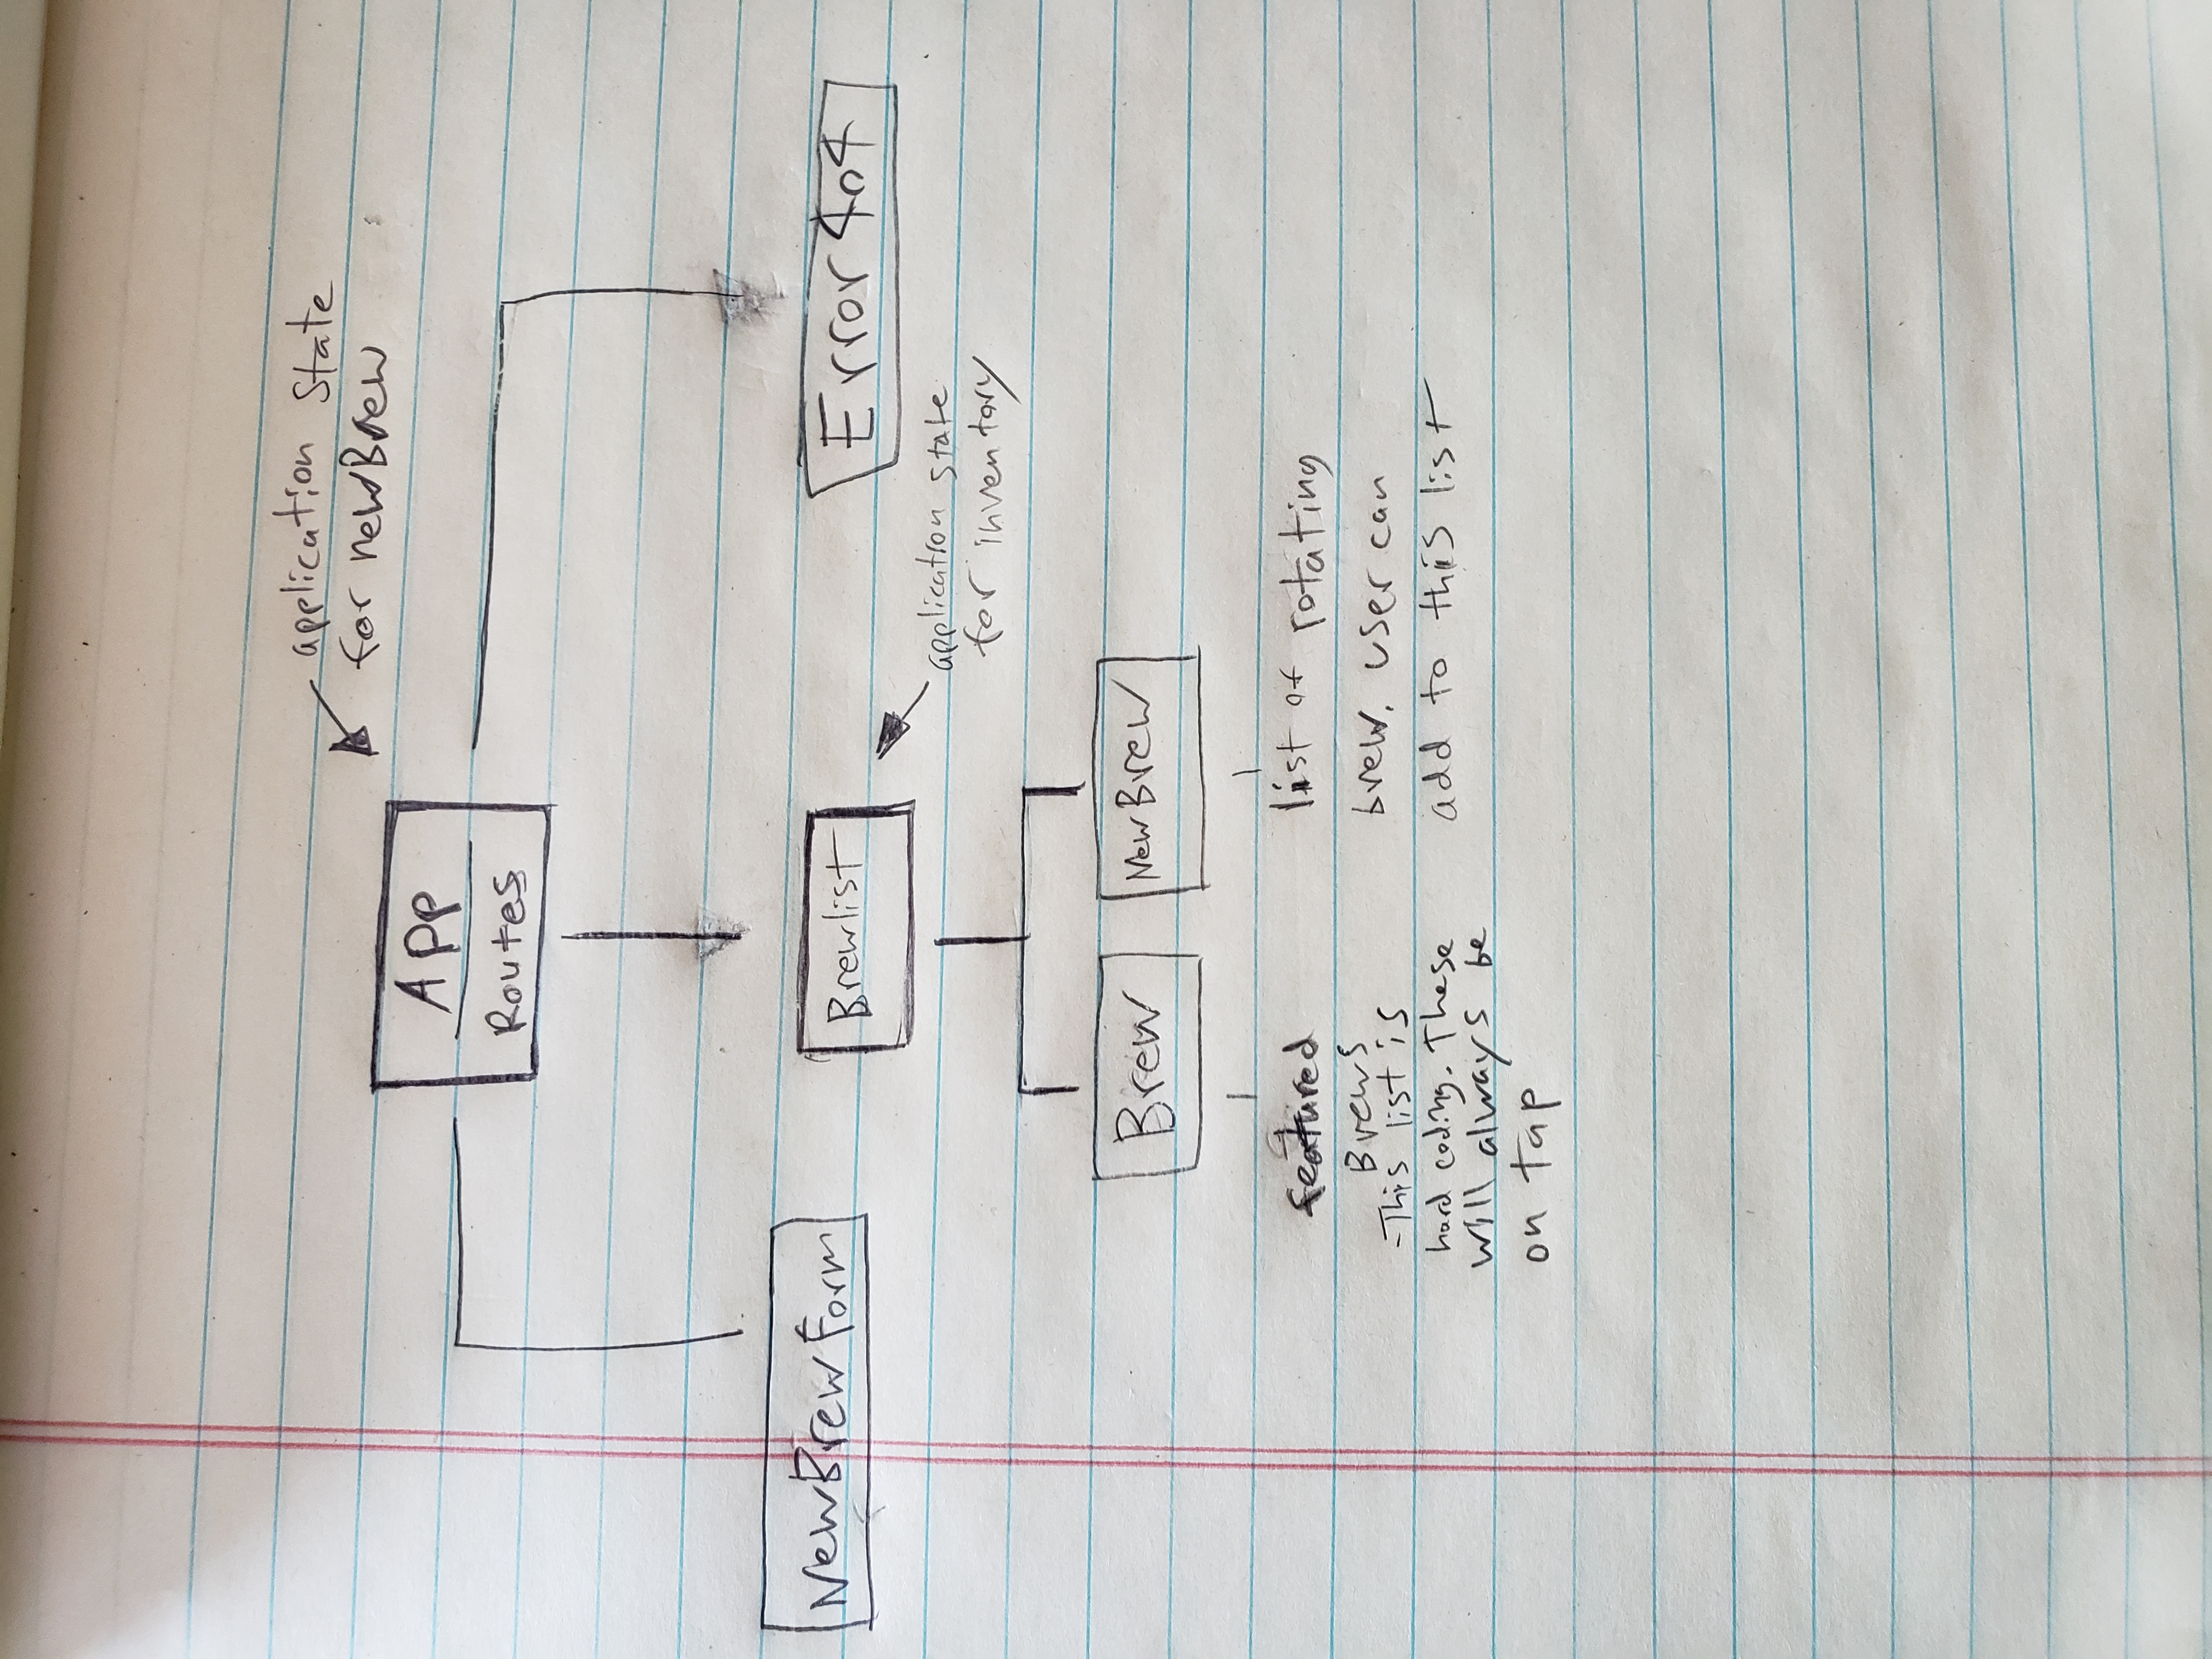 application state
for newBrew
App
Routes
NewBrewForm
Brewlist
Error404
application state
for inventory
Brew
NewBrew
featured
Brews
-This list is
hard coding. These
will always be
on tap
list of rotating
brew. user can
add to this list